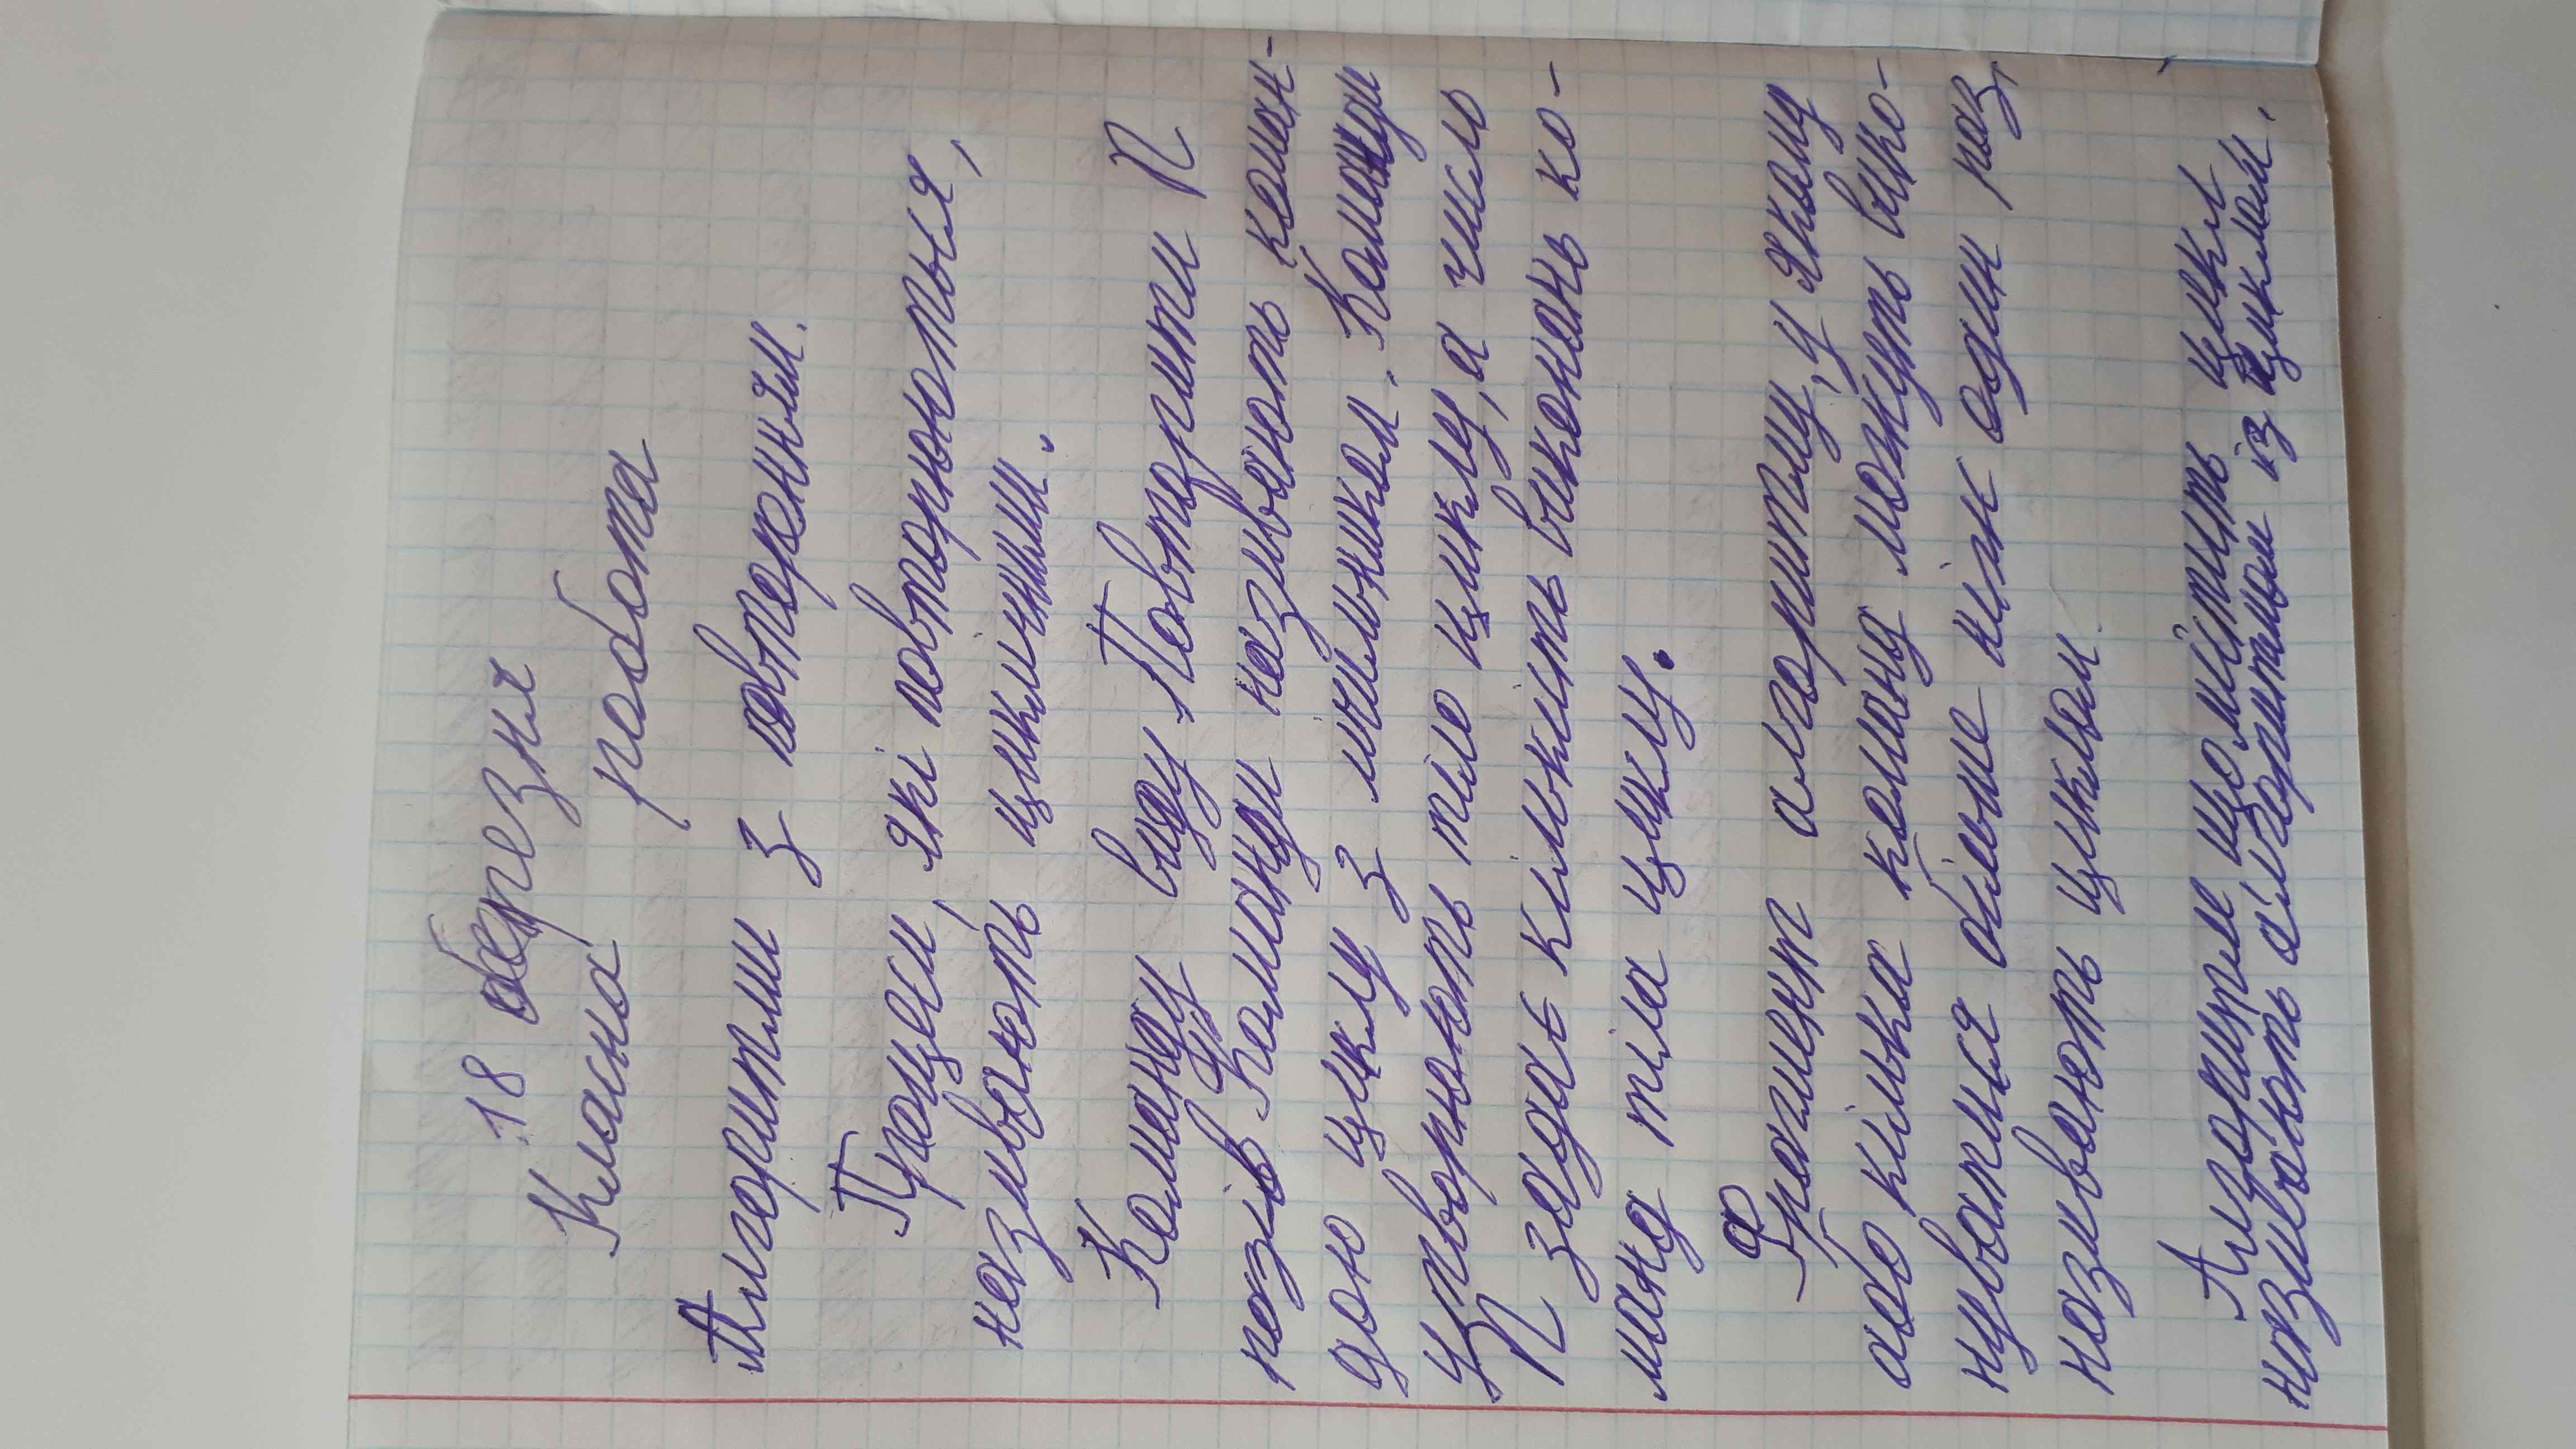 18 березня
Класна робота
Алгоритми з повтореннями.
Процеси, які повторюються,
називають циклічними.
Команду виду Повторити n
разів Команди називають коман-
дою циклу з лічильником. Команди
утворюють тіло циклу, а число
n задає кількість виконань ко-
манд тіла циклу.
Фрагмент алгоритму, у якому
або кілька команд можуть вико-
нуватися більше ніж один раз,
називають циклом.
Алгоритм що містить цикл
називають алгоритмом із циклом.